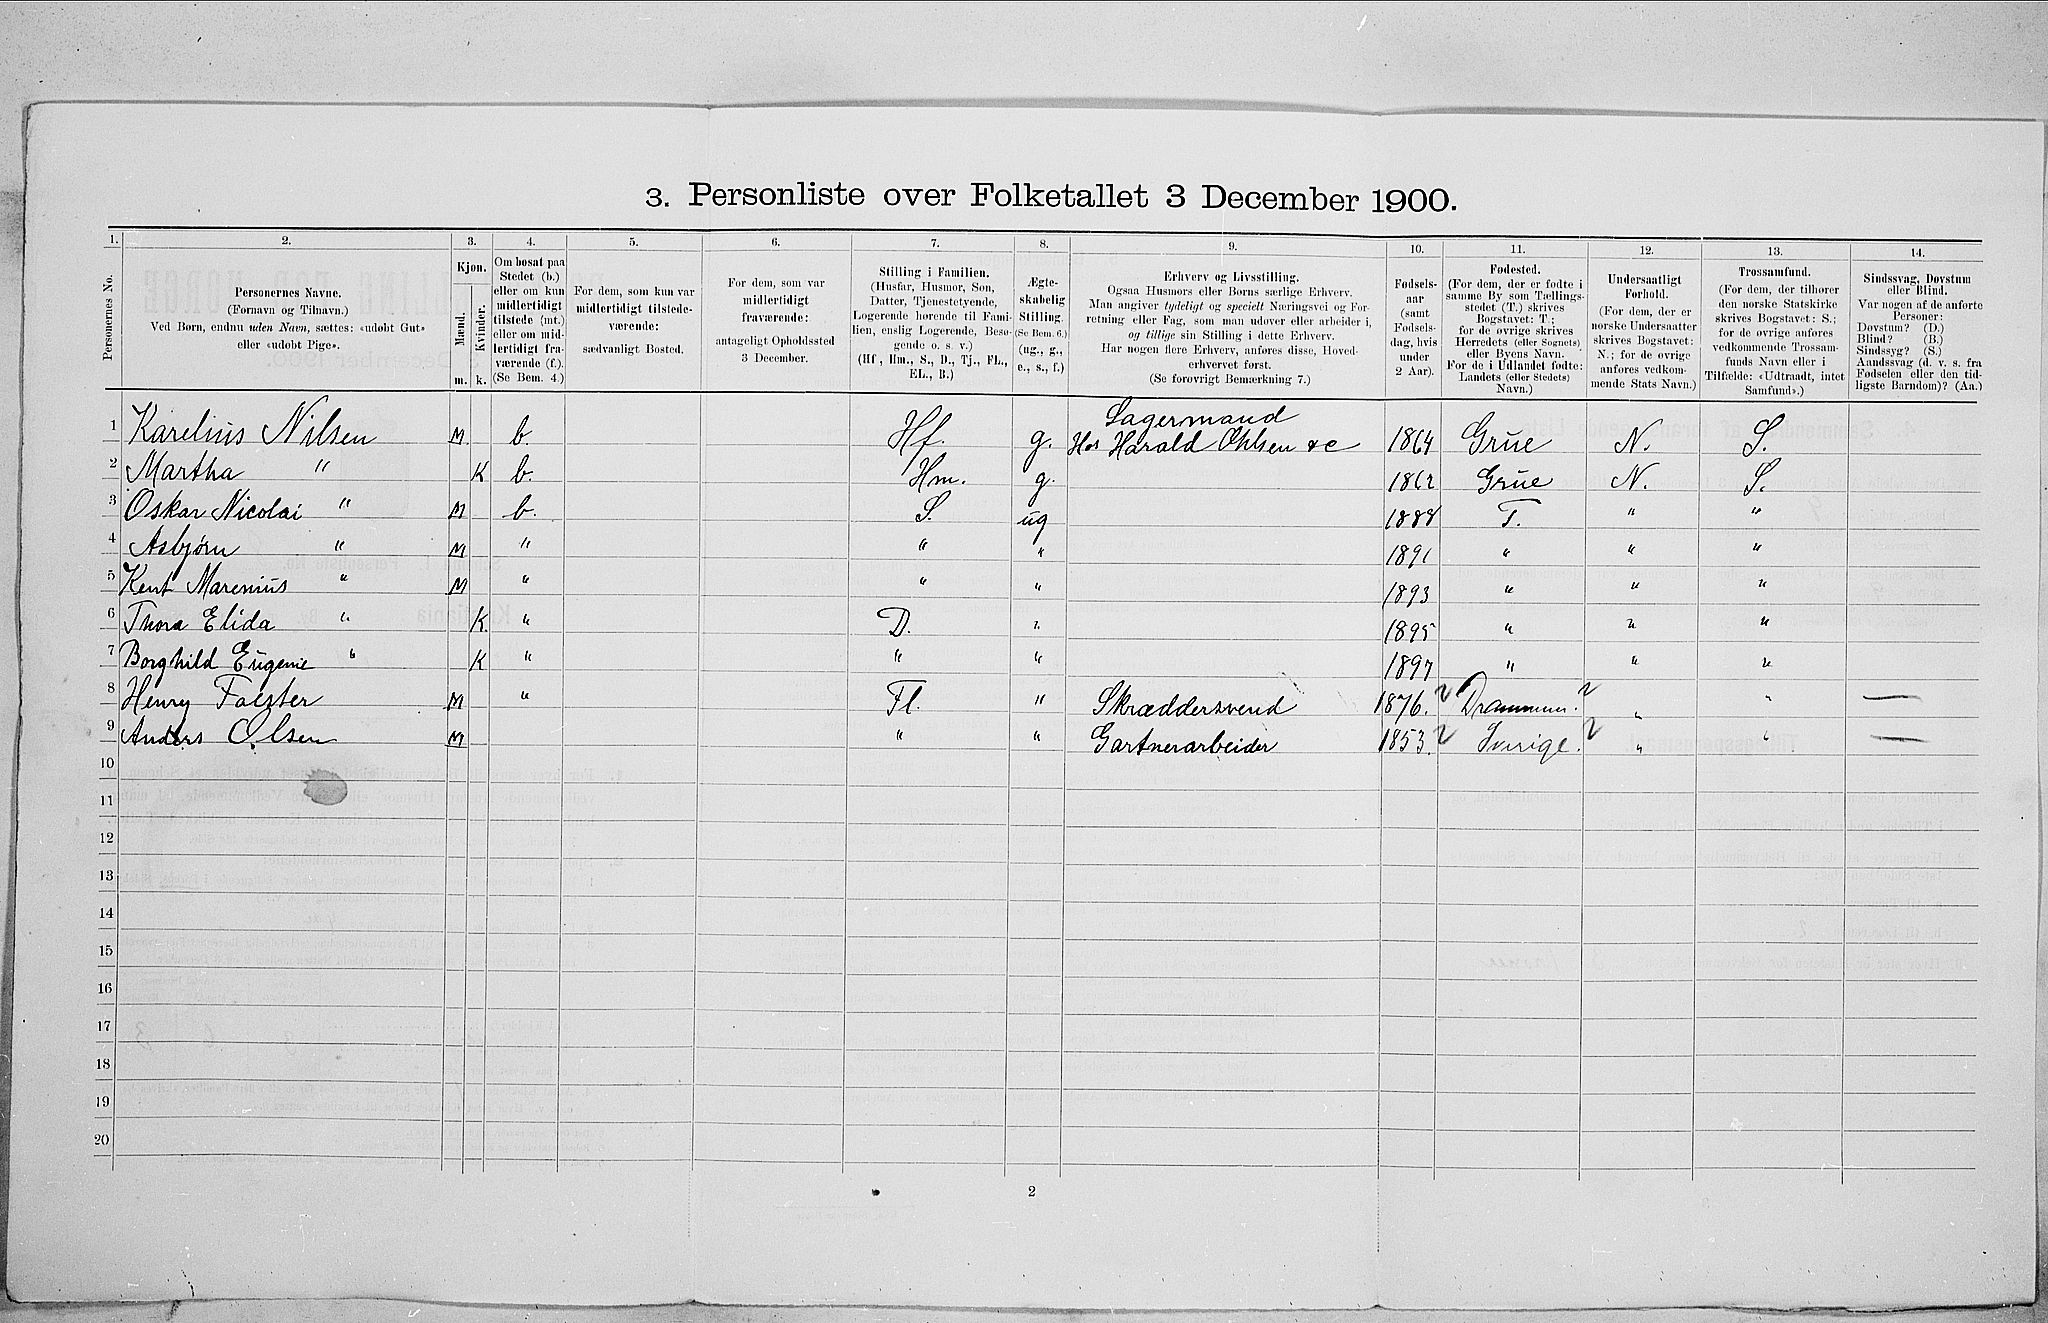 3. Personliste over Folketallet 3 December 1900.
1. 2. 3. 4. 5. 6. 7. 8. 9. 10. 11. 12. 13. 14.
Personernes No.
Personernes Navne.
(Fornavn og Tilnavn.)
Ved Børn, endnu uden Navn, sættes: «udøbt Gut»
eller «udøbt Pige».
Kjøn.
Mænd.
Kvinder.
m. k.
Om bosat paa
Stedet (b.)
eller om kun
midlertidigt
tilstede (mt.)
eller om mid-
lertidigt fra-
værende (f.).
(Se Bem. 4.)
For dem, som kun var
midlertidigt tilstede-
værende:
sædvanligt Bosted.
For dem, som var
midlertidigt
fraværende:
antageligt Opholdssted
3 December.
Stilling i Familien.
(Husfar, Husmor, Søn,
Datter, Tjenestetyende,
Logerende hørende til Fami-
lien, enslig Logerende, Besø-
gende o. s. v.)
(Hf, Hm., S., D., Tj., FL.,
EL., B.)
Ægte-
skabelig
Stilling.
(Se Bem. 6.)
(ug., g.,
e., s., f.)
Erhverv og Livsstilling.
Ogsaa Husmors eller Børns særlige Erhverv.
Man angiver tydeligt og specielt Næringsvei og For-
retning eller Fag, som man udøver eller arbeider i,
og tillige sin Stilling i dette Erhverv.
Har nogen flere Erhverv, anføres disse, Hoved-
erhvervet først.
(Se forøvrigt Bemærkning 7.)
Fødsels-
aar
(samt
Fødsels-
dag, hvis
under
2 Aar).
Fødested.
(For dem, der er fødte i
samme By som Tællings-
stedet (T.) skrives
Bogstavet: T.;
for de øvrige skrives
Herredets (eller Sognets)
eller Byens Navn.
For de i Udlandet fødte:
Landets (eller Stedets)
Navn.)
Undersaatligt
Forhold.
(For dem, der er
norske Undersaatter
skrives Bogstavet:
N.; for de øvrige
anføres vedkom-
mende Stats Navn.)
Trossamfund.
(For dem, der tilhører
den norske Statskirke
skrives Bogstavet: S.;
for de øvrige anføres
vedkommende Trossam-
funds Navn eller i
Tilfælde: «Udtraadt, intet
Samfund».)
Sindssvag, Døvstum
eller Blind.
Var nogen af de anførte
Personer:
Døvstum? (D.)
Blind? (B.)
Sindssyg? (S.)
Aandssvag (d. v. s. fra
Fødselen eller den tid-
ligste Barndom)? (Aa.)
1 Karelius Nilsen M b. Hf. g. Lagermand Hos Harald Ohlsen & c 1864 Grue N. S.
2 Martha " K b. Hm. g. 1862 Grue N. S.
3 Oskar Nicolai " M b. S. ug 1888 T. " "
4 Asbjørn " M " " " 1891 " " "
5 Kent Marenius " M " " " 1893 " " "
6 Thora Elida " K " D. " 1895 " " "
7 Borghild Eugenie " K " " " 1897 " " "
8 Henry Falster M " Fl. " Skræddersvend 1876. ? Drammen. ? " " —
9 Anders Olsen M " " Gartnerarbeider 1853. ? Sverige. ? " " —
10
11
12
13
14
15
16
17
18
19
20
2